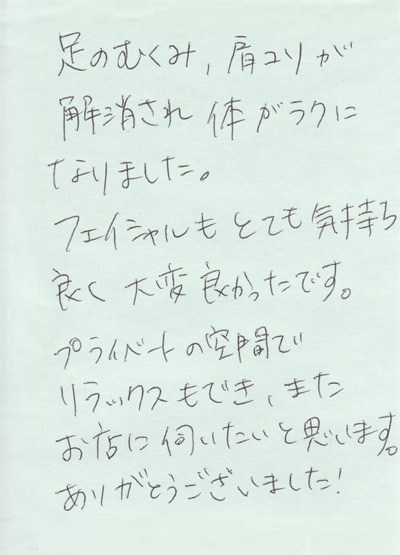 足のむくみ、肩コリが
解消され 体がラクに
なりました。
フェイシャルも とても 気持ち
良く 大変 良かったです。
プライベートの空間で
リラックスもでき、また
お店に伺いたいと思います。
ありがとうございました!